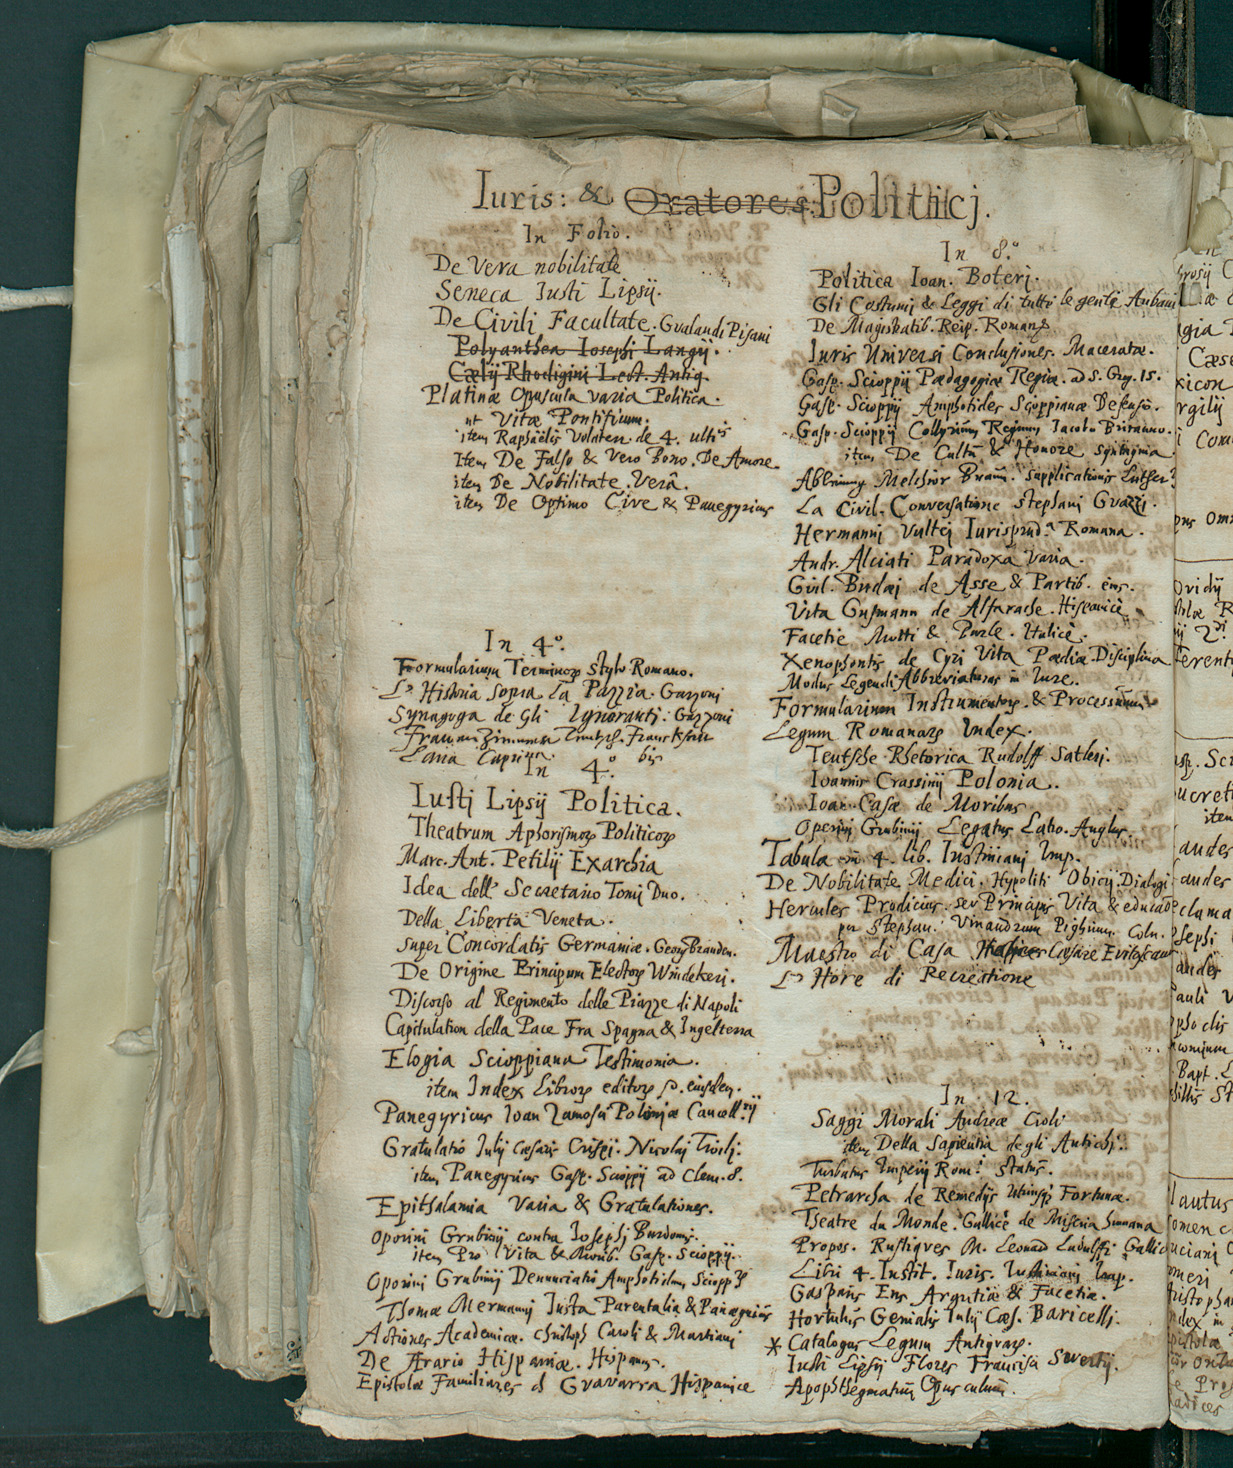 Iuris: & Oratores: Politicj.
In Folio.
De Vera nobilitate
Seneca Iusti Lipsij.
De Civili Facultate. Gualandi Pisani
Polyanthea Iosephi Langij.
Cælij Rhodigini Lect. Antiq.
Platinæ Opuscula varia Politica.
ut Vitæ Pontificum.
item Raphaëlis Volaterr. de 4. ultis
Item De Falso & Vero bono. De Amore.
item De Nobilitate Verâ.
item De Optimo Cive & Panegyricus
In 4º.
Formularium Terminorꝫ stylo Romano.
L'Historia sopra la Pazzia. Garzoni
Synagoga de Gli Ignoranti. Garzoni
In 4º. bis
Iusti Lipsij Politica.
Theatrum Aphorismorꝫ Politicorꝫ
Marc. Ant. Petilij Exarchia
Idea dell' Secretario Tomi Duo.
Della Libertà Veneta.
super Concordatis Germaniæ. Georg Branden.
De Origine Principum Electorꝫ Windekeri.
Discorso al Regimento delle Piazze di Napoli
Capitulation della Pace Fra Spagna & Ingelterra
Elogia Scioppiana Testimonia.
item Index Librorꝫ editorꝫ p. eiusdem.
Panegyricus Ioan Zamosci Poloniæ Cancell.rij
Gratulatio Iulij Cæsaris Crispi. Nicolai Troili.
item Panegyricus Gasp. Scioppij ad Clem. 8.
Epithalamia Varia & Gratulationes.
Oporini Grubinij contra Iosephj Burdonis.
item Pro Vita & Morib. Gasp. Scioppij.
Oporini Grubinij Denunciatio Amphotidum Sciopp
Thomæ Mermannij Iusta Parentalia & Panægyricus
Actiones Academicæ. Christoph Caroli & Martiani
De Ærario Hispaniæ. Hispanus.
Epistolæ Familiares d Guavarra Hispanice
In 8º.
Politica Ioan. Boterj.
Gli Costumi & Leggi di tutte le genti
De Magistratib. Reip. Romanæ
Iuris Universi Conclusiones. Maceratæ.
Gasp. Scioppij Pædagogiæ Regiæ. ad S. Greg. 15.
Gasp. Scioppij Amphotides Scioppianæ Defensio.
Gasp. Scioppij Collyrium Regium Iacobo Britanno.
item De Cultu & Honore syntagma
Melchior supplicationis Luther
La Civil. Conversatione Stephani Guazzi.
Hermanni Vultei Iurisprud.ª Romana.
Andr. Alciati Paradoxa Varia.
Guil. Budæj de Asse & Partib. eius.
Vita Gusmann de Alfarache. Hispanicè
Facetie Motti & Burle. Italicè.
Xenophontis de Cyri Vita Pædia Disciplina
Modus Legendi Abbreviaturas in Iure.
Formularium Instrumentorꝫ. & Processuum
Legum Romanarꝫ Index.
Teutsche Rhetorica Rudolff Satleri.
Ioannis Crassinij Polonia.
Ioan. Casæ de Moribus
Oporini Grubinij Legatus Latro. Anglus.
Tabula in 4. lib. Iustiniani Imp.
De Nobilitate Medici. Hypoliti Obicij Dialogi
Hercules Prodicius. seu Principis Vita & educat
per Stephan. Vinandum Pighium. Coln.
Maestro di Casa Cæsare Evitascandalo
L'Hore di Recreatione
In 12.
Saggi Morali Andreæ Cioli
item Della Sapientia degli Antichj.
Turbatus Imperij Rom.ⁱ Status.
Petrarcha de Remedijs Utriusqꝫ Fortunæ.
Theatre du Monde. Gallicè de Miseria humana
Propos. Rustiques M. Leonard Ludulffi Gallic
Libri 4. Instit. Iuris. Iustiniani Imp.
Gasparis Ens Argutiæ & Facetiæ.
Hortulus Genialis Iulij Cæs. Baricellj.
* Catalogus Legum Antiquarꝫ.
Iusti Lipsij Flores Francisci Swertij.
Apophthegmatum Opusculum.